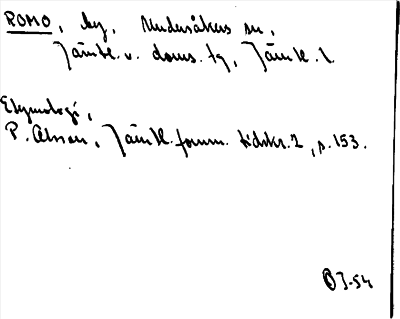 ROMO, by, Undersåkers sn,
Jämtl. v. doms. tg, Jämtl. l.
Etymologi,
P. Olsson, Jämtl. fornm. tidskr. 2, s. 153.
OJ-54